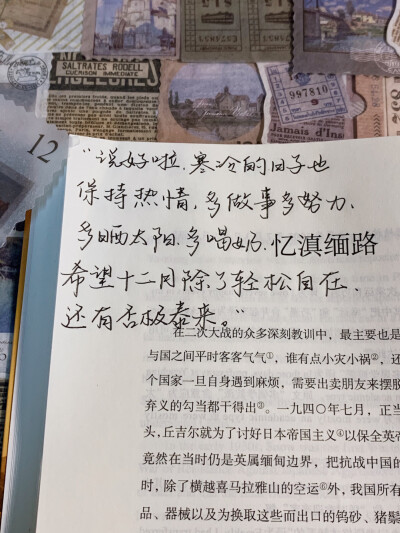 SALTRATES RODELL
GUERISON IMMEDIATE
997810
Jamais d'Ins
12
"说好啦,寒冷的日子也
保持热情,多做事多努力、
多晒太阳.多喝奶.
忆滇缅路
希望十二月除了轻松自在、
还有否极泰来。"
在二次大战的众多深刻教训中，最主要也是
与国之间平时客客气气①，谁有点小灾小祸②，还
个国家一旦自身遇到麻烦，需要出卖朋友来摆脱
弃义的勾当都干得出③。一九四〇年七月，正当
头，丘吉尔就为了讨好日本帝国主义④以保全英帝
竟然在当时仍是英属缅甸边界，把抗战中国的
时，除了横越喜马拉雅山的空运⑥外，我国所有
品、器械以及为换取这些而出口的钨砂、猪鬃